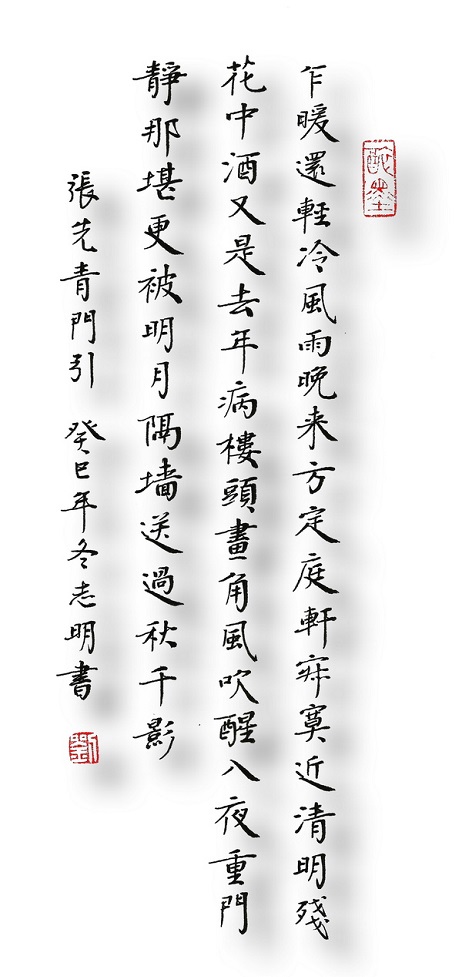 乍暖還輕冷風雨晚来方定庭軒寂寞近清明殘
花中酒又是去年病樓頭畫角風吹醒入夜重門
靜那堪更被明月隔墻送過秋千影
張先青門引 癸巳年冬志明書
劉